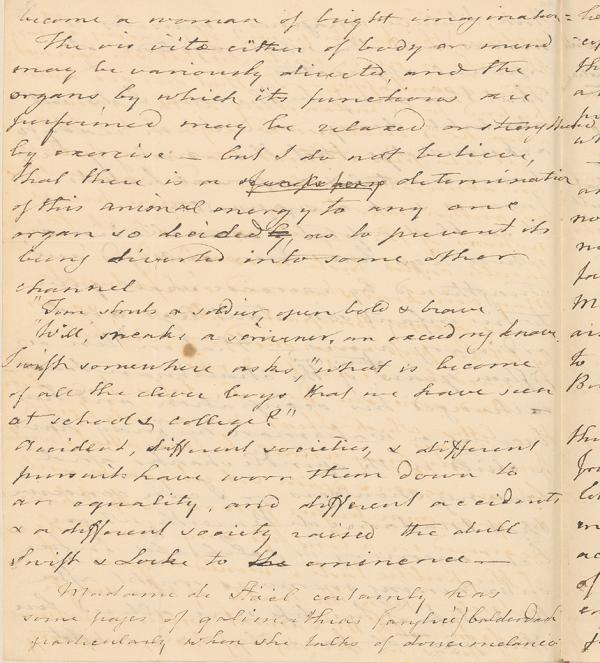 become a woman of bright imagination =
The vis vitæ either of body or mind
may be variously directed, and the
organs by which its functions are
performed may be relaxed or strengthened
by exercise — but I do not believe,
that there is a determination
of this animal energy to any one
organ so decided, as to prevent its
being diverted into some other
channel
"Tom struts a soldier, open bold & brave
"Will, sneaks a scrivener, an exceeding knave.
Swift somewhere asks, "what is become
of all the clever boys that we have seen
at school & college?"
Accident, different societies, & different
pursuits have worn them down to
an equality, and different accidents
& a different society raised the dull
Swift & Locke to the eminence —
Madame de Stael certainly has
some pages of galimathias (anglicé) balderdash
particularly when she talks of